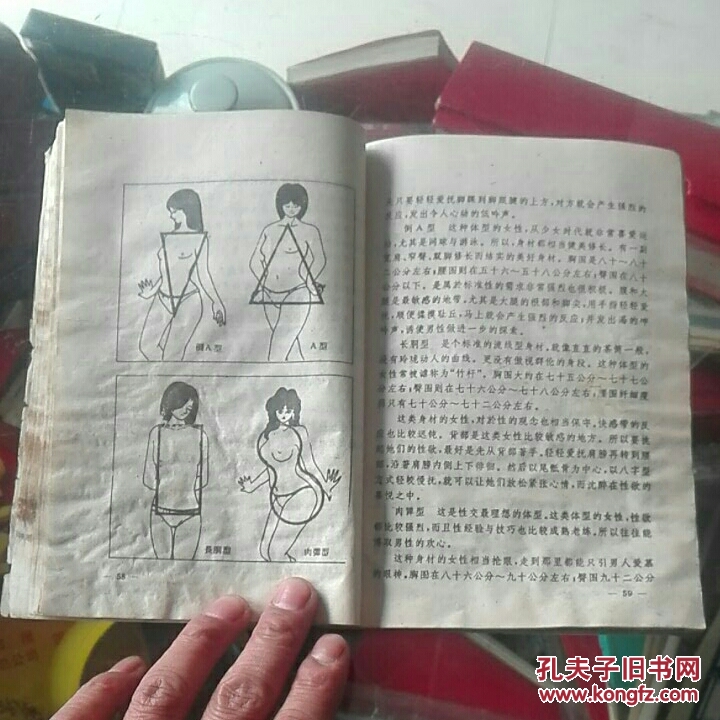 倒A型
A型
長胴型
肉彈型
— 58 —
只要轻轻爱抚脚踝到脚跟腱的上方，对方就会产生强烈的
反应，发出令人心动的低吟声。
倒A型 这种体型的女性，从少女时代就非常喜爱运
动，尤其是网球与游泳。所以，身材都相当健美修长。有一副
宽肩，窄臀，腿脚修长而结实的美好身材。胸围是八十～八十
二公分左右；腰围则在五十六～五十八公分左右；臀围在八十
公分以下。是属於标准性的需求非常强烈也很积极。腹和大
腿是最敏感的地带，尤其是大腿的根部和脚尖，用手指轻轻爱
抚，顺便揉摸耻丘，马上就会产生强烈的反应；并发出渴的呻
吟声，诱使男性做进一步的探索。
长胴型 是个标准的流线型身材，就像直直的茶筒一般，
没有玲珑动人的曲线。更没有傲视群伦的身段。这种体型的
女性常被谑称为“竹杆”。胸围大约在七十五公分～七十七公
分左右；臀围则在七十六公分～七十八公分左右；腰围纤细覆
只有七十公分～七十二公分左右。
这类身材的女性，对於性的观念也相当保守，快感带的反
应也比较迟钝。背部是这类女性比较敏感的地方。所以要挑
起她们的性欲，最好是先从背部著手。轻轻爱抚肩膀再转到腰
部，沿著肩膀内侧上下徘徊。然后以尾骶骨为中心，以八字型
方式轻轻慢抚，就可以让她们放松紧张心情，而沈醉在性欲的
喜悦之中。
肉弹型 这是性交最理想的体型。这类体型的女性，性欲
都比较强烈，而且性经验与技巧也比较成熟老练，所以往往能
够取男性的欢心。
这种身材的女性相当抢眼，走到那里都能只引男人爱慕
的眼神。胸围在八十六公分～九十公分左右；臀围九十二公分
— 59 —
孔夫子旧书网
www.kongfz.com